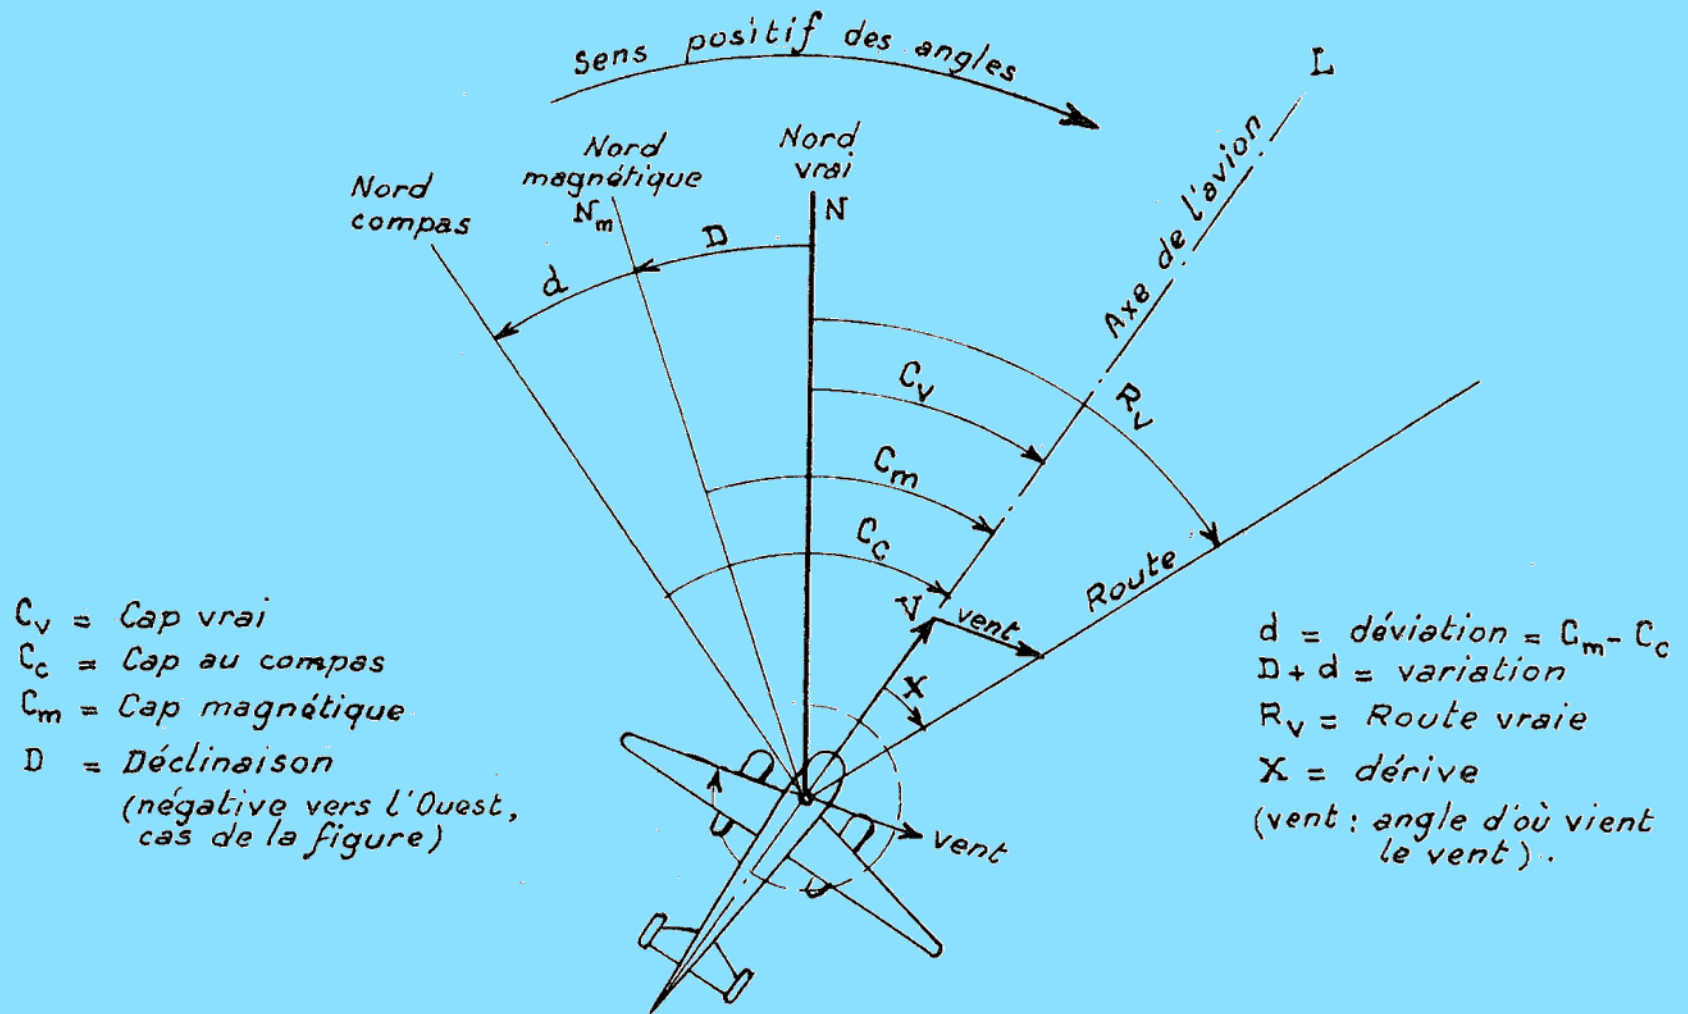 Sens positif des angles
L
Nord
vrai
N
Nord
magnétique
Nm
Nord
compas
D
d
Axe de l'avion
Cv
Rv
Cm
Cc
Route
V
vent
X
vent
Cv = Cap vrai
Cc = Cap au compas
Cm = Cap magnétique
D = Déclinaison
(négative vers l'Ouest,
cas de la figure)
d = déviation = Cm - Cc
D + d = variation
Rv = Route vraie
X = dérive
(vent : angle d'où vient
le vent).